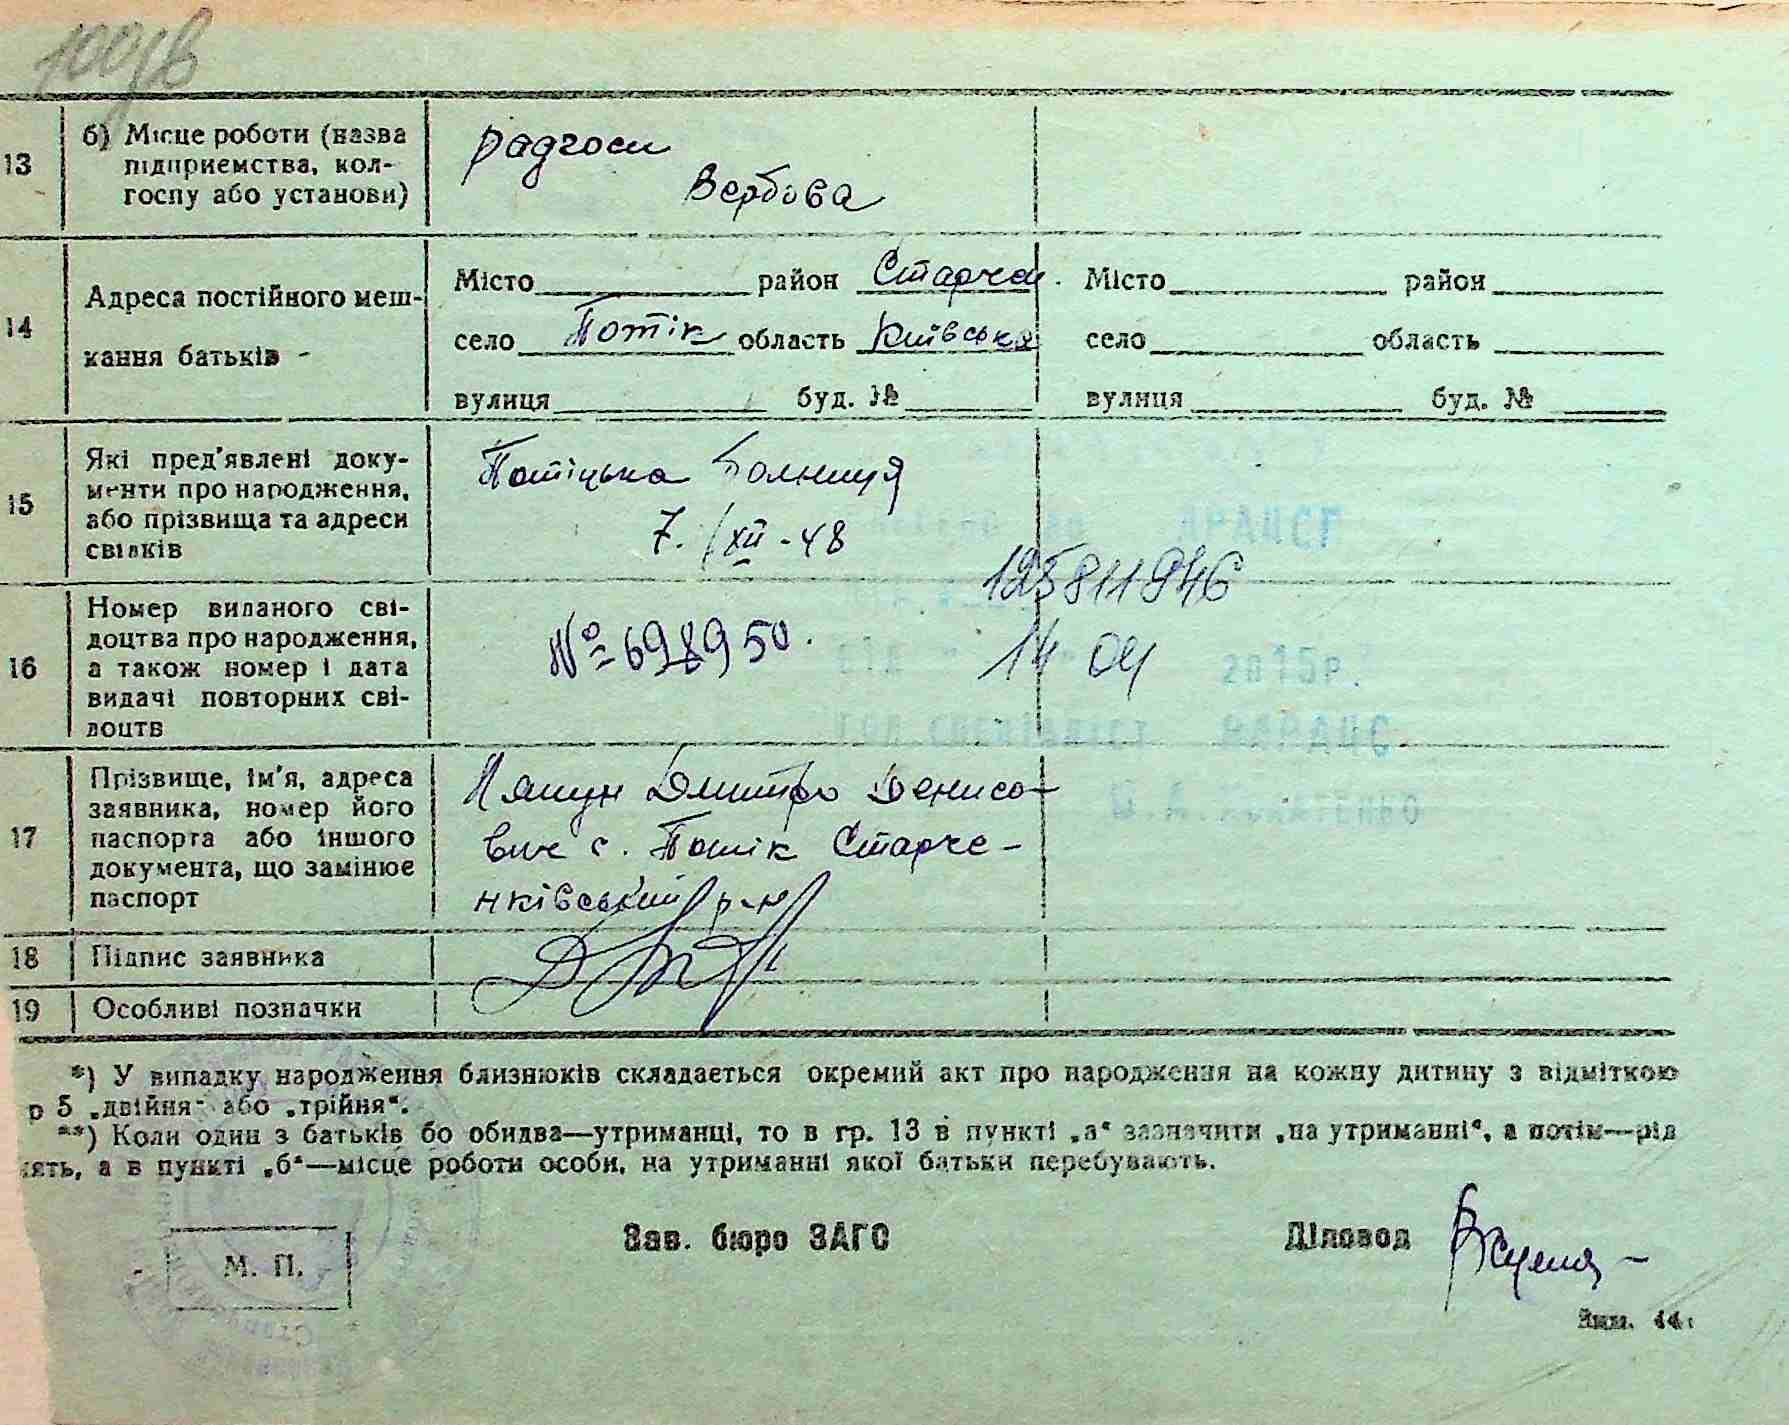 100зв
13
б) Місце роботи (назва
підприємства, кол-
госпу або установи)
радгосп
Вербова
14
Адреса постійного меш-
кання батьків -
Місто район Старчен. Місто район
село Потік область Київська село область
вулиця буд. № вулиця буд. №
15
Які пред'явлені доку-
менти про народження,
або прізвища та адреси
свідків
Потіцька болниця
7. /XII - 48
ДРАЦСГ
16
Номер виданого сві-
доцтва про народження,
а також номер і дата
видачі повторних сві-
доцтв
№ 698950.
125811946
від " 14 " 04 2015р.
Гол спеціаліст ВДРАЦС
17
Прізвище, ім'я, адреса
заявника, номер його
паспорта або іншого
документа, що замінює
паспорт
Дмитро Денисо-
вич с. Потік Старче-
нківський р-н
18
Підпис заявника
19
Особливі позначки
*) У випадку народження близнюків складається окремий акт про народження на кожну дитину з відміткою
р 5 „двійня" або „трійня".
**) Коли один з батьків бо обидва—утриманці, то в гр. 13 в пункті „а" зазначити „на утриманні", а потім—рід
ять, а в пункті „б"—місце роботи особи, на утриманні якої батьки перебувають.
М. П.
Зав. бюро ЗАГС
Діловод